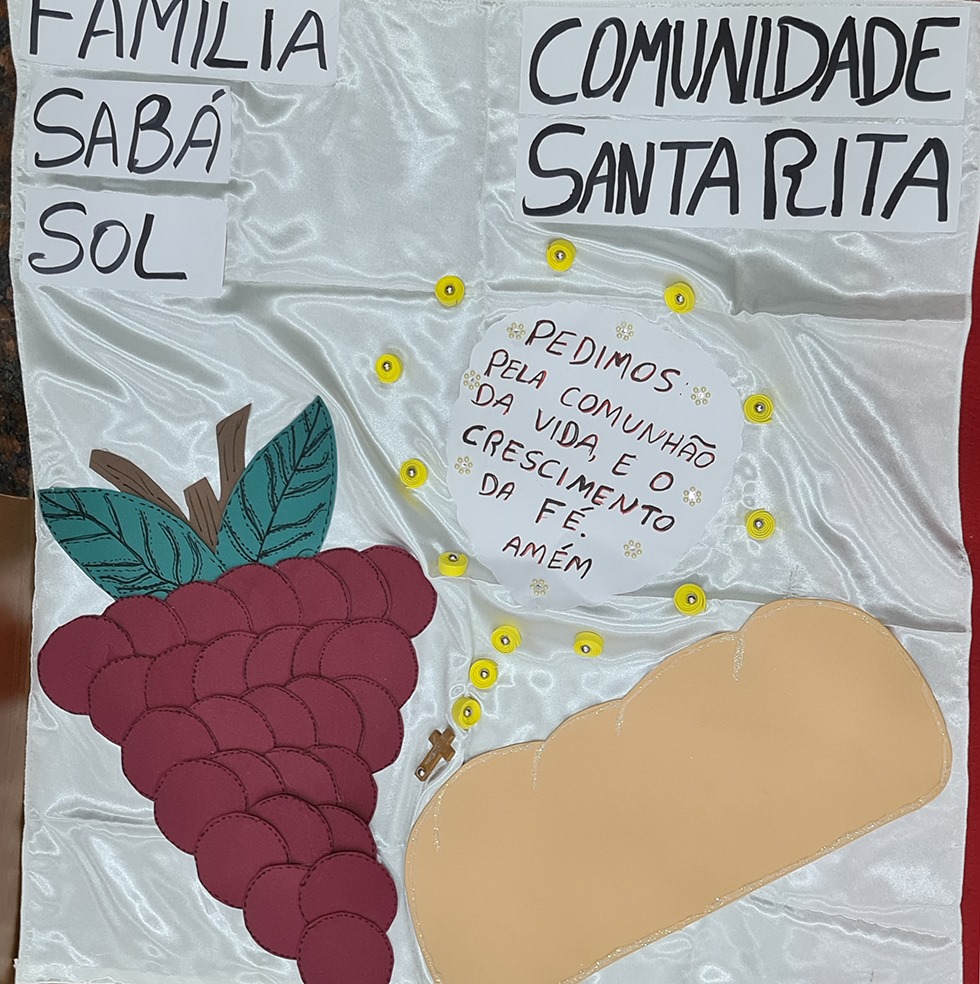 FAMÍLIA
SABÁ
SOL
COMUNIDADE
SANTA RITA
PEDIMOS:
PELA COMUNHÃO
DA VIDA, E O
CRESCIMENTO
DA FÉ.
AMÉM